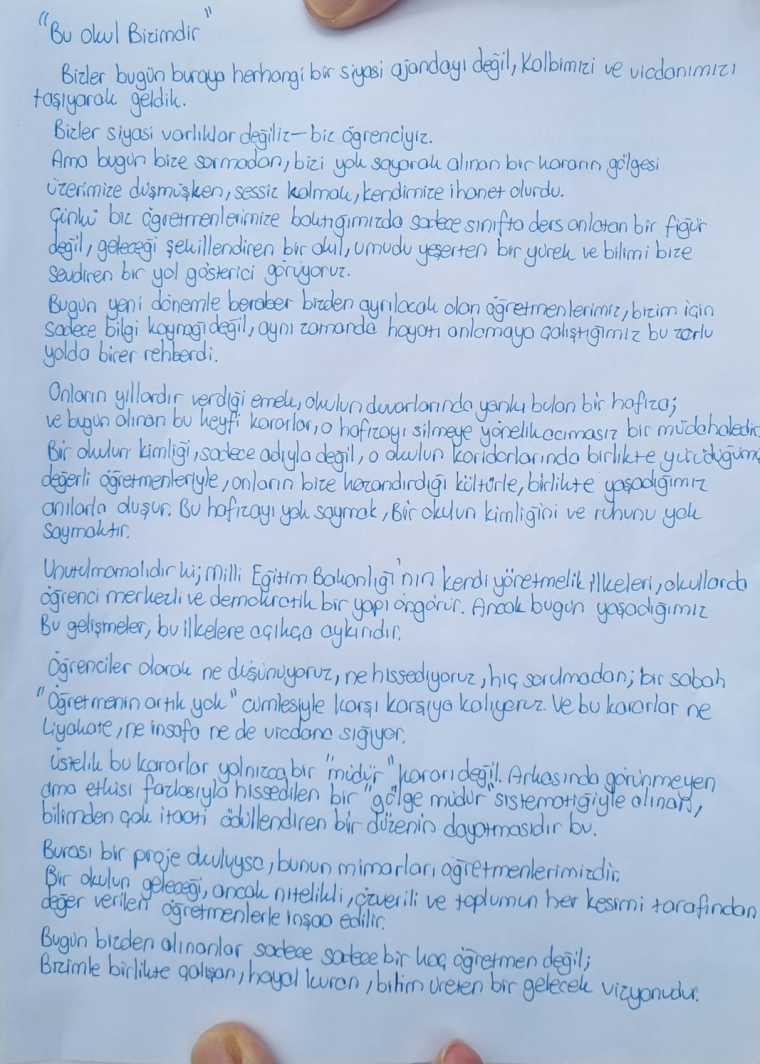 "Bu okul Bizimdir"
Bizler bugün buraya herhangi bir siyasi ajandayı değil, kalbimizi ve vicdanımızı
taşıyarak geldik.
Bizler siyasi varlıklar değiliz—biz öğrenciyiz.
Ama bugün bize sormadan, bizi yok sayarak alınan bir kararın gölgesi
üzerimize düşmüşken, sessiz kalmak, kendimize ihanet olurdu.
Çünkü biz öğretmenlerimize baktığımızda sadece sınıfta ders anlatan bir figür
değil, geleceği şekillendiren bir akıl, umudu yeşerten bir yürek ve bilimi bize
sevdiren bir yol gösterici görüyoruz.
Bugün yeni dönemle beraber bizden ayrılacak olan öğretmenlerimiz, bizim için
sadece bilgi kaynağı değil, aynı zamanda hayatı anlamaya çalıştığımız bu zorlu
yolda birer rehberdi.
Onların yıllardır verdiği emek, okulun duvarlarında yankı bulan bir hafıza;
ve bugün alınan bu keyfi kararlar, o hafızayı silmeye yönelik acımasız bir müdahaledir.
Bir okulun kimliği, sadece adıyla değil, o okulun koridorlarında birlikte yürüdüğümüz
değerli öğretmenleriyle, onların bize kazandırdığı kültürle, birlikte yaşadığımız
anılarla oluşur. Bu hafızayı yok saymak, Bir okulun kimliğini ve ruhunu yok
saymaktır.
Unutulmamalıdır ki; Milli Eğitim Bakanlığı'nın kendi yönetmelik ilkeleri, okullarda
öğrenci merkezli ve demokratik bir yapı öngörür. Ancak bugün yaşadığımız
Bu gelişmeler, bu ilkelere açıkça aykırıdır.
Öğrenciler olarak ne düşünüyoruz, ne hissediyoruz, hiç sorulmadan; bir sabah
"Öğretmenin artık yok" cümlesiyle karşı karşıya kalıyoruz. Ve bu kararlar ne
Liyakate, ne insafa ne de vicdana sığıyor.
Üstelik bu kararlar yalnızca bir "müdür" kararı değil. Arkasında görünmeyen
ama etkisi fazlasıyla hissedilen bir "gölge müdür" sistematiğiyle alınan,
bilimden çok itaati ödüllendiren bir düzenin dayatmasıdır bu.
Burası bir proje okuluysa, bunun mimarları öğretmenlerimizdir.
Bir okulun geleceği, ancak nitelikli, özverili ve toplumun her kesimi tarafından
değer verilen öğretmenlerle inşaa edilir.
Bugün bizden alınanlar sadece sadece bir kaç öğretmen değil;
Bizimle birlikte çalışan, hayal kuran, bilim üreten bir gelecek vizyonudur.